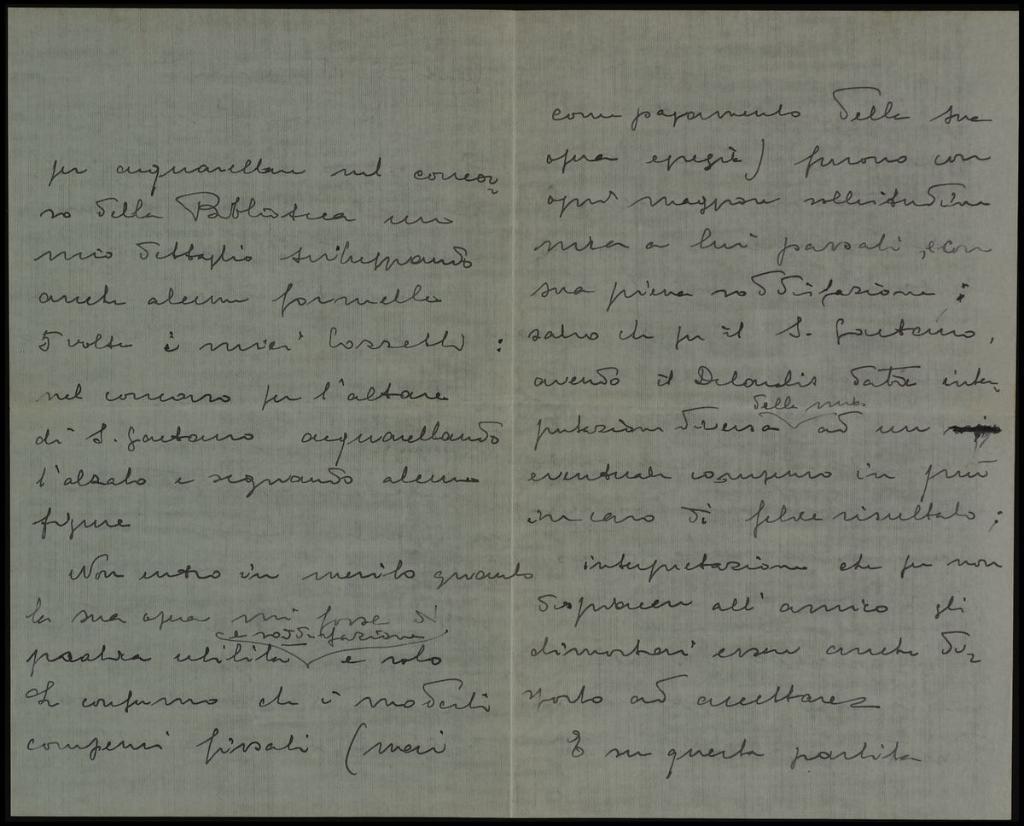 per acquarellare nel concor-
so della Biblioteca uno
mio dettaglio sviluppando
anche alcune formelle
svolte i miei bozzetti:
nel concorso per l'altare
di S. Gaetano acquarellando
l'alzato e segnando alcune
figure
Non entro in merito quanto
la sua opera mi fosse di
e soddisfazione
pratica utilità e solo
Le confermo che i modesti
compensi fissati (mai
come pagamento della sua
opera egregia) furono con
ogni maggiore sollecitudine
mia a lui passati, e con
sua piena soddisfazione;
salvo che per il S. Gaetano,
avendo il Delandis data inter-
della mia
pretazione diversa ad un
eventuale compenso in più
in caso di felice risultato;
interpretazione che per non
dispiacere all'amico gli
dimostrai essere anche di-
sposto ad accettare
E su questa partita